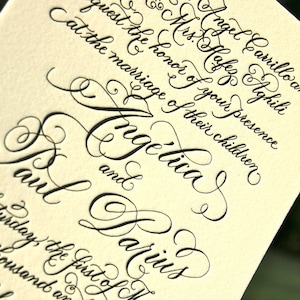 Angel Carrillo an
& Mrs. Hafez Aghili
quest the honor of your presence
at the marriage of their children
Angélica
and
Paul Darius
turday, the first of M
thousand an